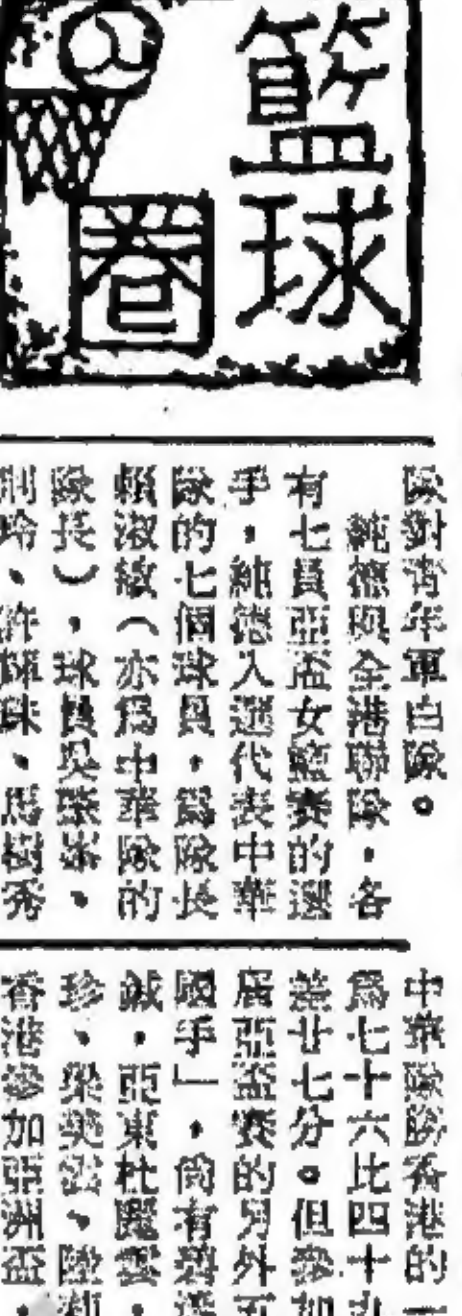 籃球圈
隊對青年軍白隊。
純德與全港聯隊,各
有七員亞盃女籃賽的選
手,純德入選代表中華
隊的七個球員,為隊長
賴淑敏(亦為中華隊的
隊長),球員吳
玲、許輝珠、馬樹秀
中華隊勝香港的
為七十六比四十
差廿七分。但參加
屆亞盃賽的另外五
國手」,尚有
亞東杜麗雲,
珍、梁美雲、陸
香港參加亞洲盃